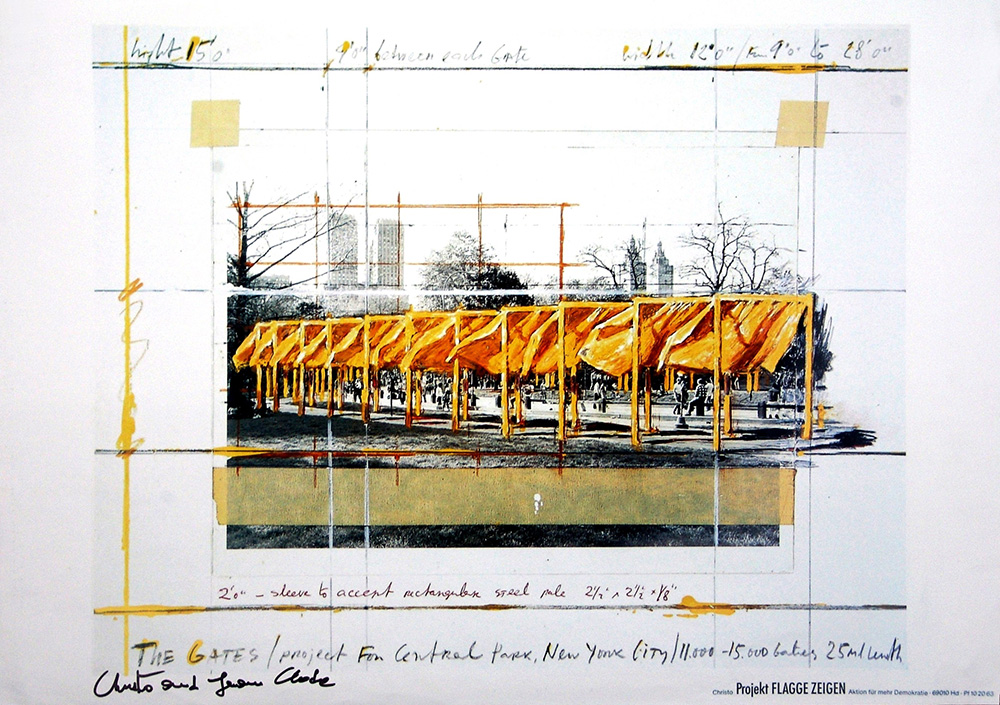 hight 15'0" 9'0" between each Gate width 12'0" / from 9'0" to 28'0"
2'0" – sleeve to accept rectangular steel pole 2½" × 2½" × 1/8"
THE GATES / PROJECT FOR Central Park, New York City / 11.000 - 15.000 Gates 25 ml length
Christo and Jeanne Claude
Christo Projekt FLAGGE ZEIGEN Aktion für mehr Demokratie · 69010 Hd · Pf 10 20 63